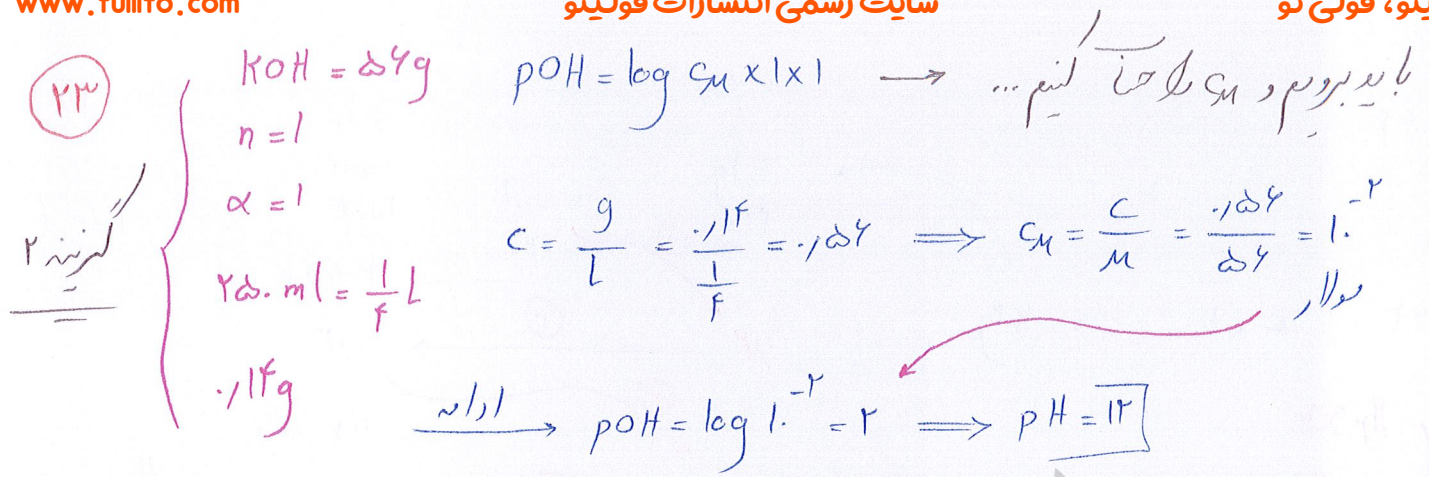 www.fullito.com
سایت رسمی انتشارات فولیتو
فولی تو
۲۳
KOH = ۵۶g
n = ۱
α = ۱
۲۵۰ ml = ۱/۴ L
۰٫۱۴g
گزینه ۲
pOH = log C_M × ۱ × ۱ → باید برویم و C_M را حساب کنیم...
C = g/L = ۰٫۱۴/(۱/۴) = ۰٫۵۶ ⟹ C_M = C/M = ۰٫۵۶/۵۶ = ۱۰⁻² مولار
ادامه → pOH = log ۱۰⁻² = ۲ ⟹ pH = ۱۲